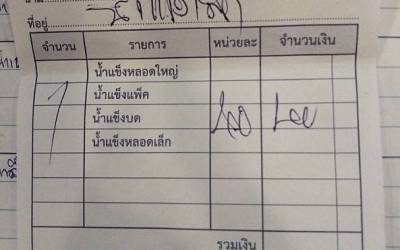 ที่อยู่
จำนวน รายการ หน่วยละ จำนวนเงิน
น้ำแข็งหลอดใหญ่
น้ำแข็งแพ็ค
น้ำแข็งบด
น้ำแข็งหลอดเล็ก
รวมเงิน